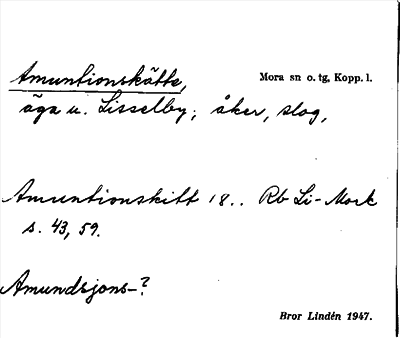 Amuntionskätte, Mora sn o. tg, Kopp. l.
äga u. Lisselby; åker, slog,
Amuntionskift 18.. Rb Li-Mork
s. 43, 59.
Amundsjons-?
Bror Lindén 1947.